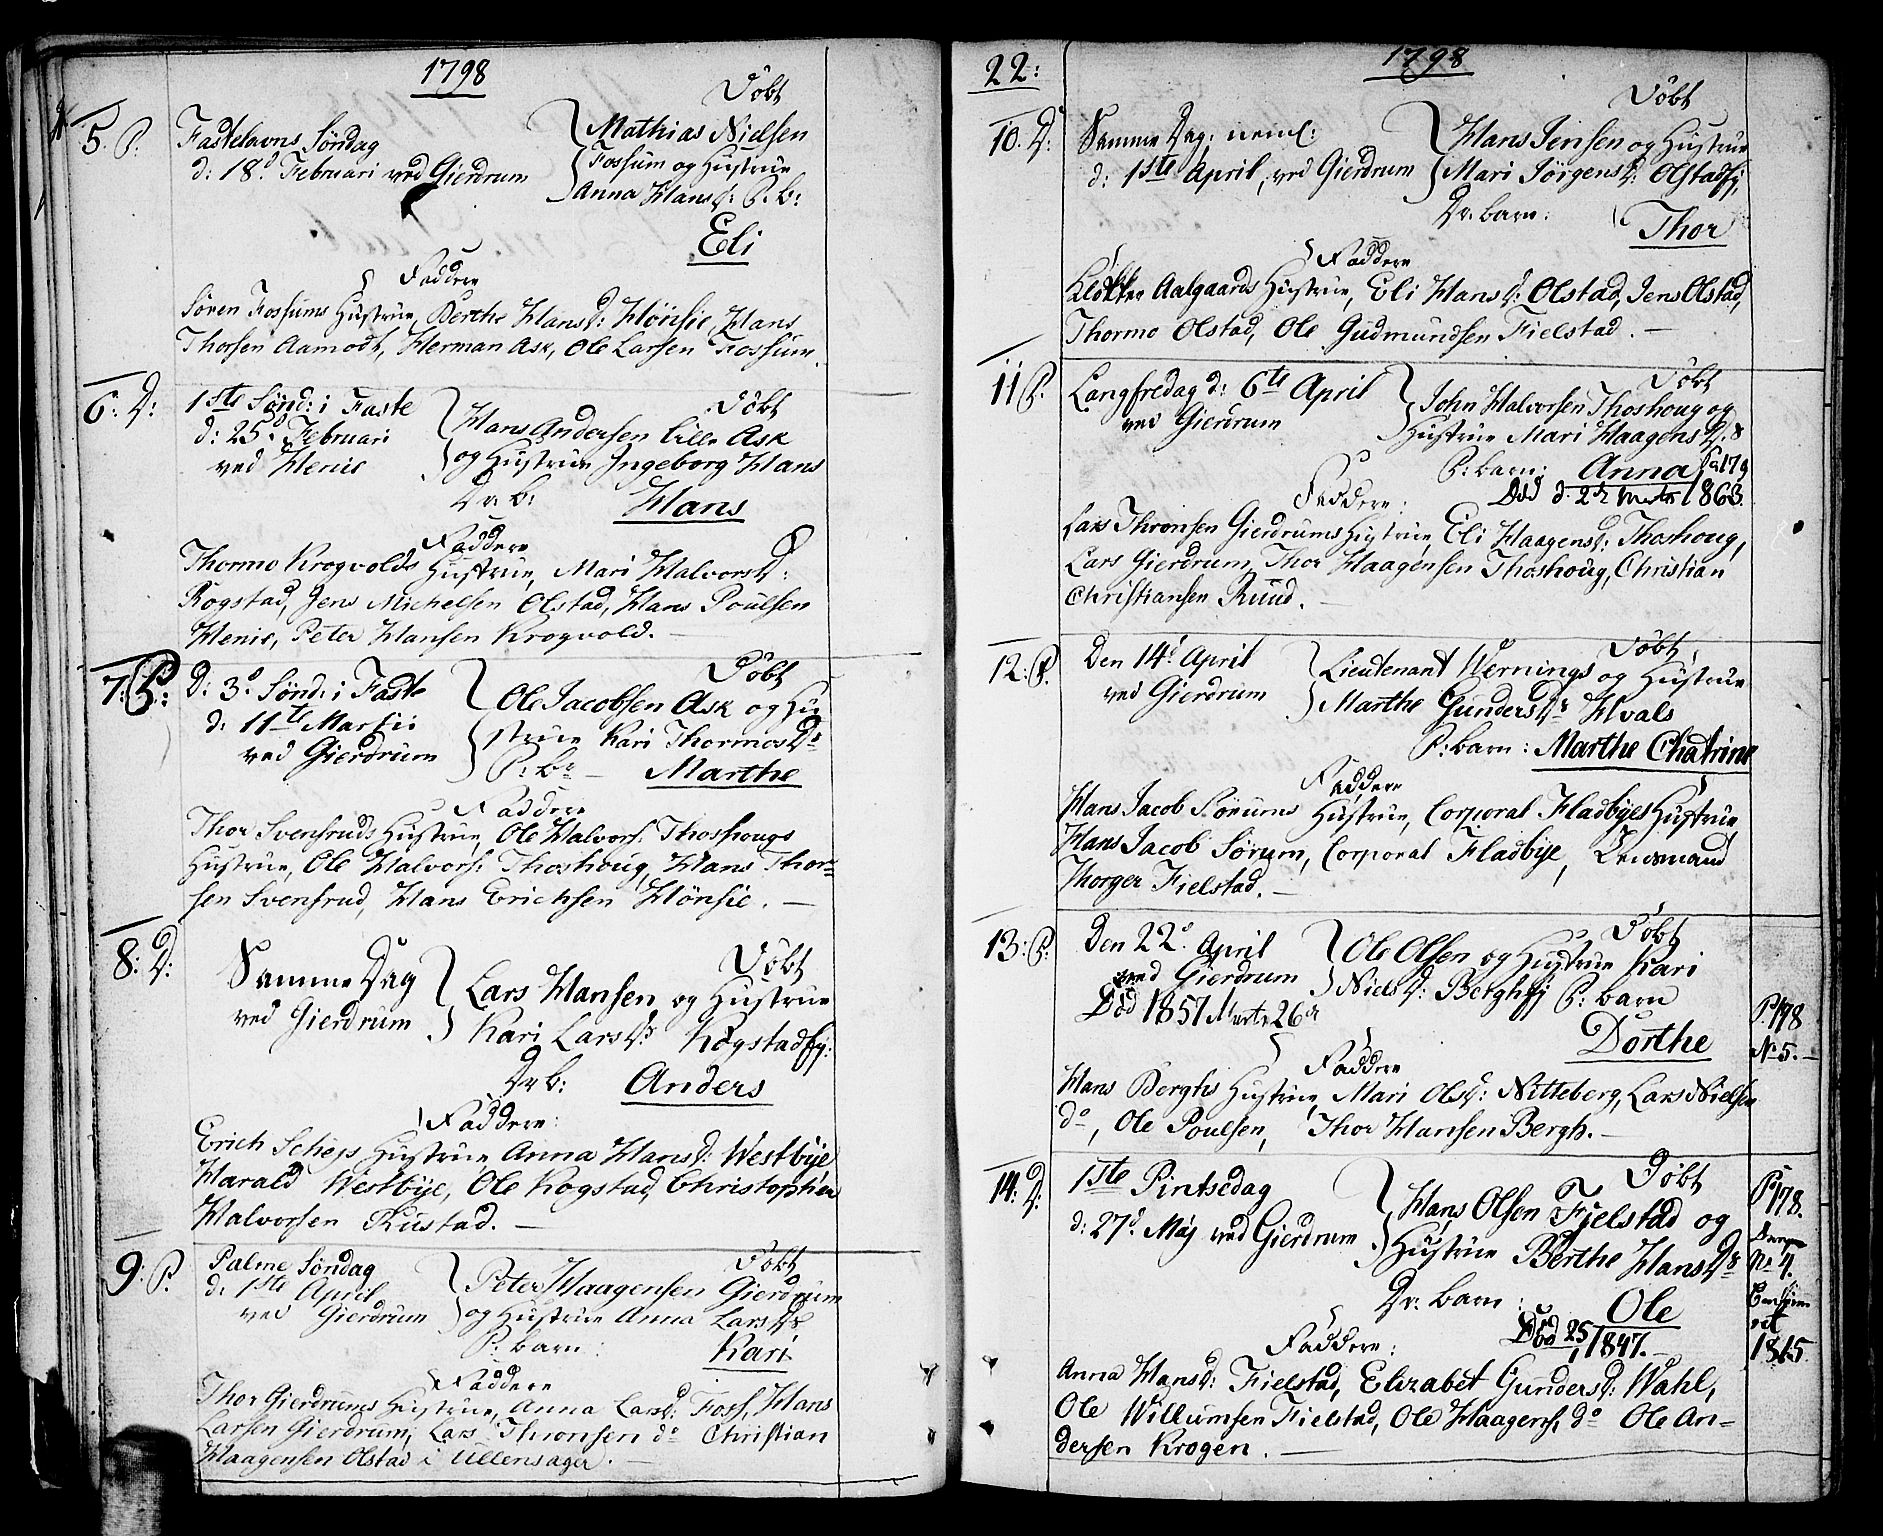 1798
5. P. Fastelavns Söndag
d: 18d Februari ved Gierdrum
Döbt
Mathias Nielsen
Fossum og Hustrue
Anna Hansd: P. b:
Eli
Faddere
Sören Fossums Hustrue, Berthe Hansd: Hönsie, Hans
Thorsen Aamodt, Herman Ask, Ole Larsen Fossum.
6: D: 1ste Sönd: i Faste
d: 25d Februari
ved Henie
Döbt
Hans Andersen Lille Ask
og Hustrue Ingeborg Hans
Dr b: Hans
Faddere
Thormo Krogvolds Hustrue, Mari Halvorsd:
Rogstad, Jens Michelsen Olstad, Hans Poulsen
Henie, Peter Hansen Krogvold. —
7: P: D: 3d Sönd: i Faste
d: 11te Martii
ved Gierdrum
Döbt
Ole Jacobsen Ask og Hu
strue Kari Thormosdr
P: br — Marthe
Faddere
Thor Svensruds Hustrue, Ole Halvors: Thoshougs
Hustrue, Ole Halvors: Thoshoug, Hans Thor-
sen Svensrud, Hans Erichsen Hönsie. —
8: D: Samme Dag
ved Gierdrum
Döbt
Lars Hansen og Hustrue
Kari Larsdr Kogstadej:
Dr b: Anders
Faddere:
Erich Scheys Hustrue, Anna Hansd: Westbye
Harald Westbye, Ole Kogstad, Christopher
Halvorsen Rustad. —
9: P. Palme Söndag
d: 1ste April
ved Gierdrum
Döbt
Peter Haagensen Gierdrum
og Hustrue Anna Larsdr
P: barn: Kari
Faddere
Thor Gierdrums Hustrue, Anna Larsd: Foss, Hans
Larsen Gierdrum, Lars Thronsen do Christian
Haagensen Olstad i Ullensager. —
22:
1798
10. D: Samme Dag; neml:
d: 1ste April, ved Gierdrum
Döbt
Hans Jensen og Hustrue
Mari Jörgensd: Olstadej
Dr. barn: Thor
Faddere
Klokker Aalgaards Hustrue, Eli Hansd: Olstad, Jens Olstad,
Thormo Olstad, Ole Gudmundsen Fielstad. —
11 P. Langfredag d: 6te April
ved Gierdrum
Döbt
John Halvorsen Thoshoug og
Hustrue Mari Haagensdr
P: barn: Anna
Död d. 1863.
Faddere:
Lars Thronsen Gierdrums Hustrue, Eli Haagensd: Thoshoug,
Lars Gierdrum, Thor Haagensen Thoshoug, Christian
Christiansen Ruud. —
12: P. Den 14d April
ved Gierdrum
Döbt
Lieutenant Wernings og Hustrue
Marthe Gundersdr Hvals
P: barn: Marthe Chatrine
Faddere
Hans Jacob Sörums Hustrue, Corporal Fladbyes Hustrue
Hans Jacob Sörum, Corporal Fladbye, Lensmand
Thorger Fielstad. —
13: P. Den 22d April
ved Gierdrum
Död 1857 Marts 26d
Döbt
Ole Olsen og Hustrue Kari
Nielsd: Berghej P: barn
Dorthe
P. 198
No 5. —
Faddere
Hans Berghs Hustrue, Mari Olsd: Nitteberg, Lars Nielsen
do, Ole Poulsen, Thor Hansen Bergh. —
14: D: 1ste Pintsedag
d: 27d Maj ved Gierdrum
Döbt
Hans Olsen Fjelstad og
Hustrue Berthe Hansdr
Dr. barn: Ole
Död 25/1 1847. —
P. 178.
No 4.
1815
Faddere:
Anna Hansd: Fielstad, Elizabet Gundersd: Wahl,
Ole Willumsen Fielstad, Ole Haagens: do Ole An-
dersen Krogen. —